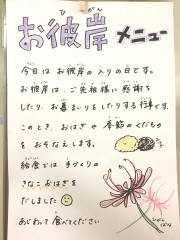 お彼岸 メニュー
ひがん
今日は お彼岸の入りの日です。
お彼岸は、ご先祖様に感謝を
したり、お墓まいりをしたりする行事です。
このとき、おはぎや 季節のくだもの
をおそなえします。
給食では 手づくりの
きなこおはぎを
だしました
あじわって 食べてください
ひがん
ばな